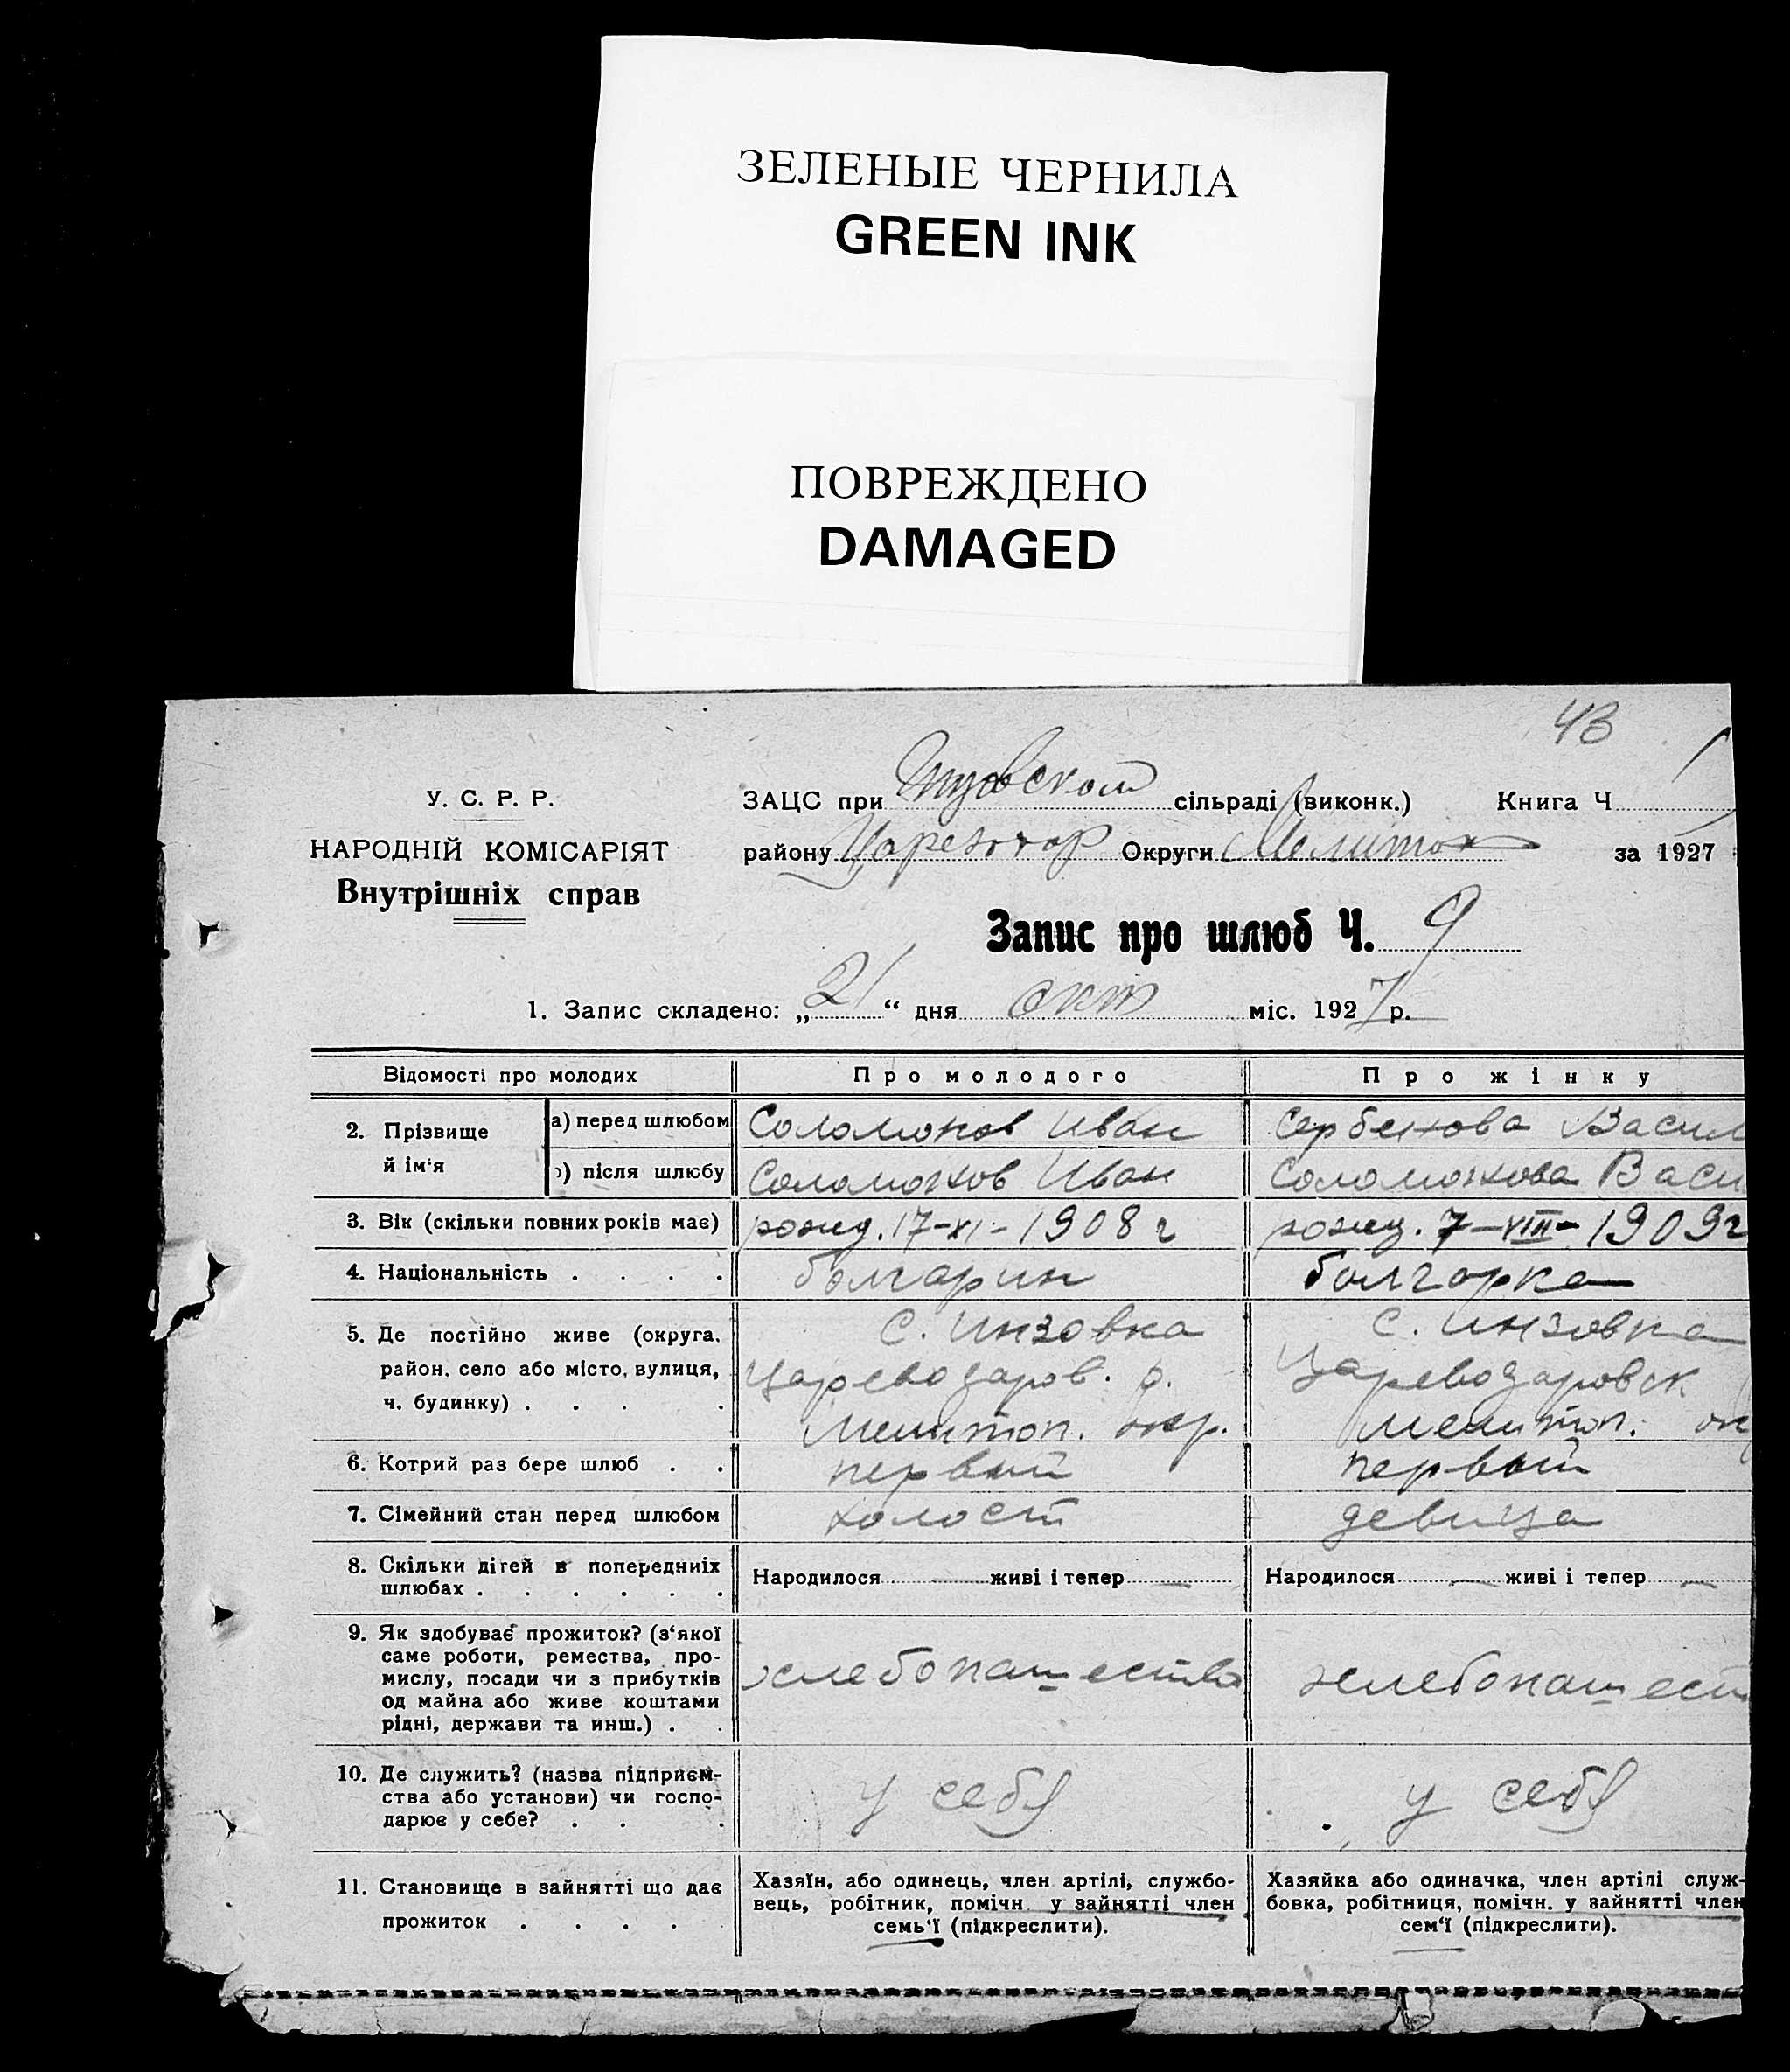 ЗЕЛЕНЫЕ ЧЕРНИЛА
GREEN INK
ПОВРЕЖДЕНО
DAMAGED
43
У. С. Р. Р.
НАРОДНІЙ КОМІСАРІЯТ
Внутрішніх справ
ЗАЦС при сільраді (виконк.) Книга Ч
району Округи Мелитоп за 1927
Запис про шлюб Ч. 9
1. Запис складено: „21“ дня окт міс. 1927 р.
Відомості про молодих Про молодого Про жінку
2. Прізвище й ім‘я
а) перед шлюбом Соломонов Иван Сербинова Васил
) після шлюбу Соломонов Иван Соломонова Васи
3. Вік (скільки повних років має) рожд. 17-XI-1908 г рожд. 7-VIII-1909 г
4. Національність . . . . болгарин болгарка
5. Де постійно живе (округа, район, село або місто, вулиця, ч. будинку) . . . .
с. Инзовка
Цареводаров. р.
Мелитоп. окр.
с. Инзовка
Цареводаровск
Мелитоп. ок
6. Котрий раз бере шлюб . . первый первый
7. Сімейний стан перед шлюбом холост девица
8. Скільки дітей в попередниіх
шлюбах . . . . . .
Народилося — живі і тепер —
Народилося — живі і тепер —
9. Як здобуває прожиток? (з‘якої
саме роботи, ремества, про-
мислу, посади чи з прибутків
од майна або живе коштами
рідні, держави та инш.) . .
хлебопашество
хлебопашест
10. Де служить? (назва підприєм-
ства або установи) чи госпо-
дарює у себе? . . .
у себя
у себя
11. Становище в зайнятті що дає
прожиток . . . . .
Хазяїн, або одинець, член артілі, службо-
вець, робітник, помічн у зайнятті член
семь‘ї (підкреслити).
Хазяйка або одиначка, член артілі служ-
бовка, робітниця, помічн. у зайнятті член
сем‘ї (підкреслити).